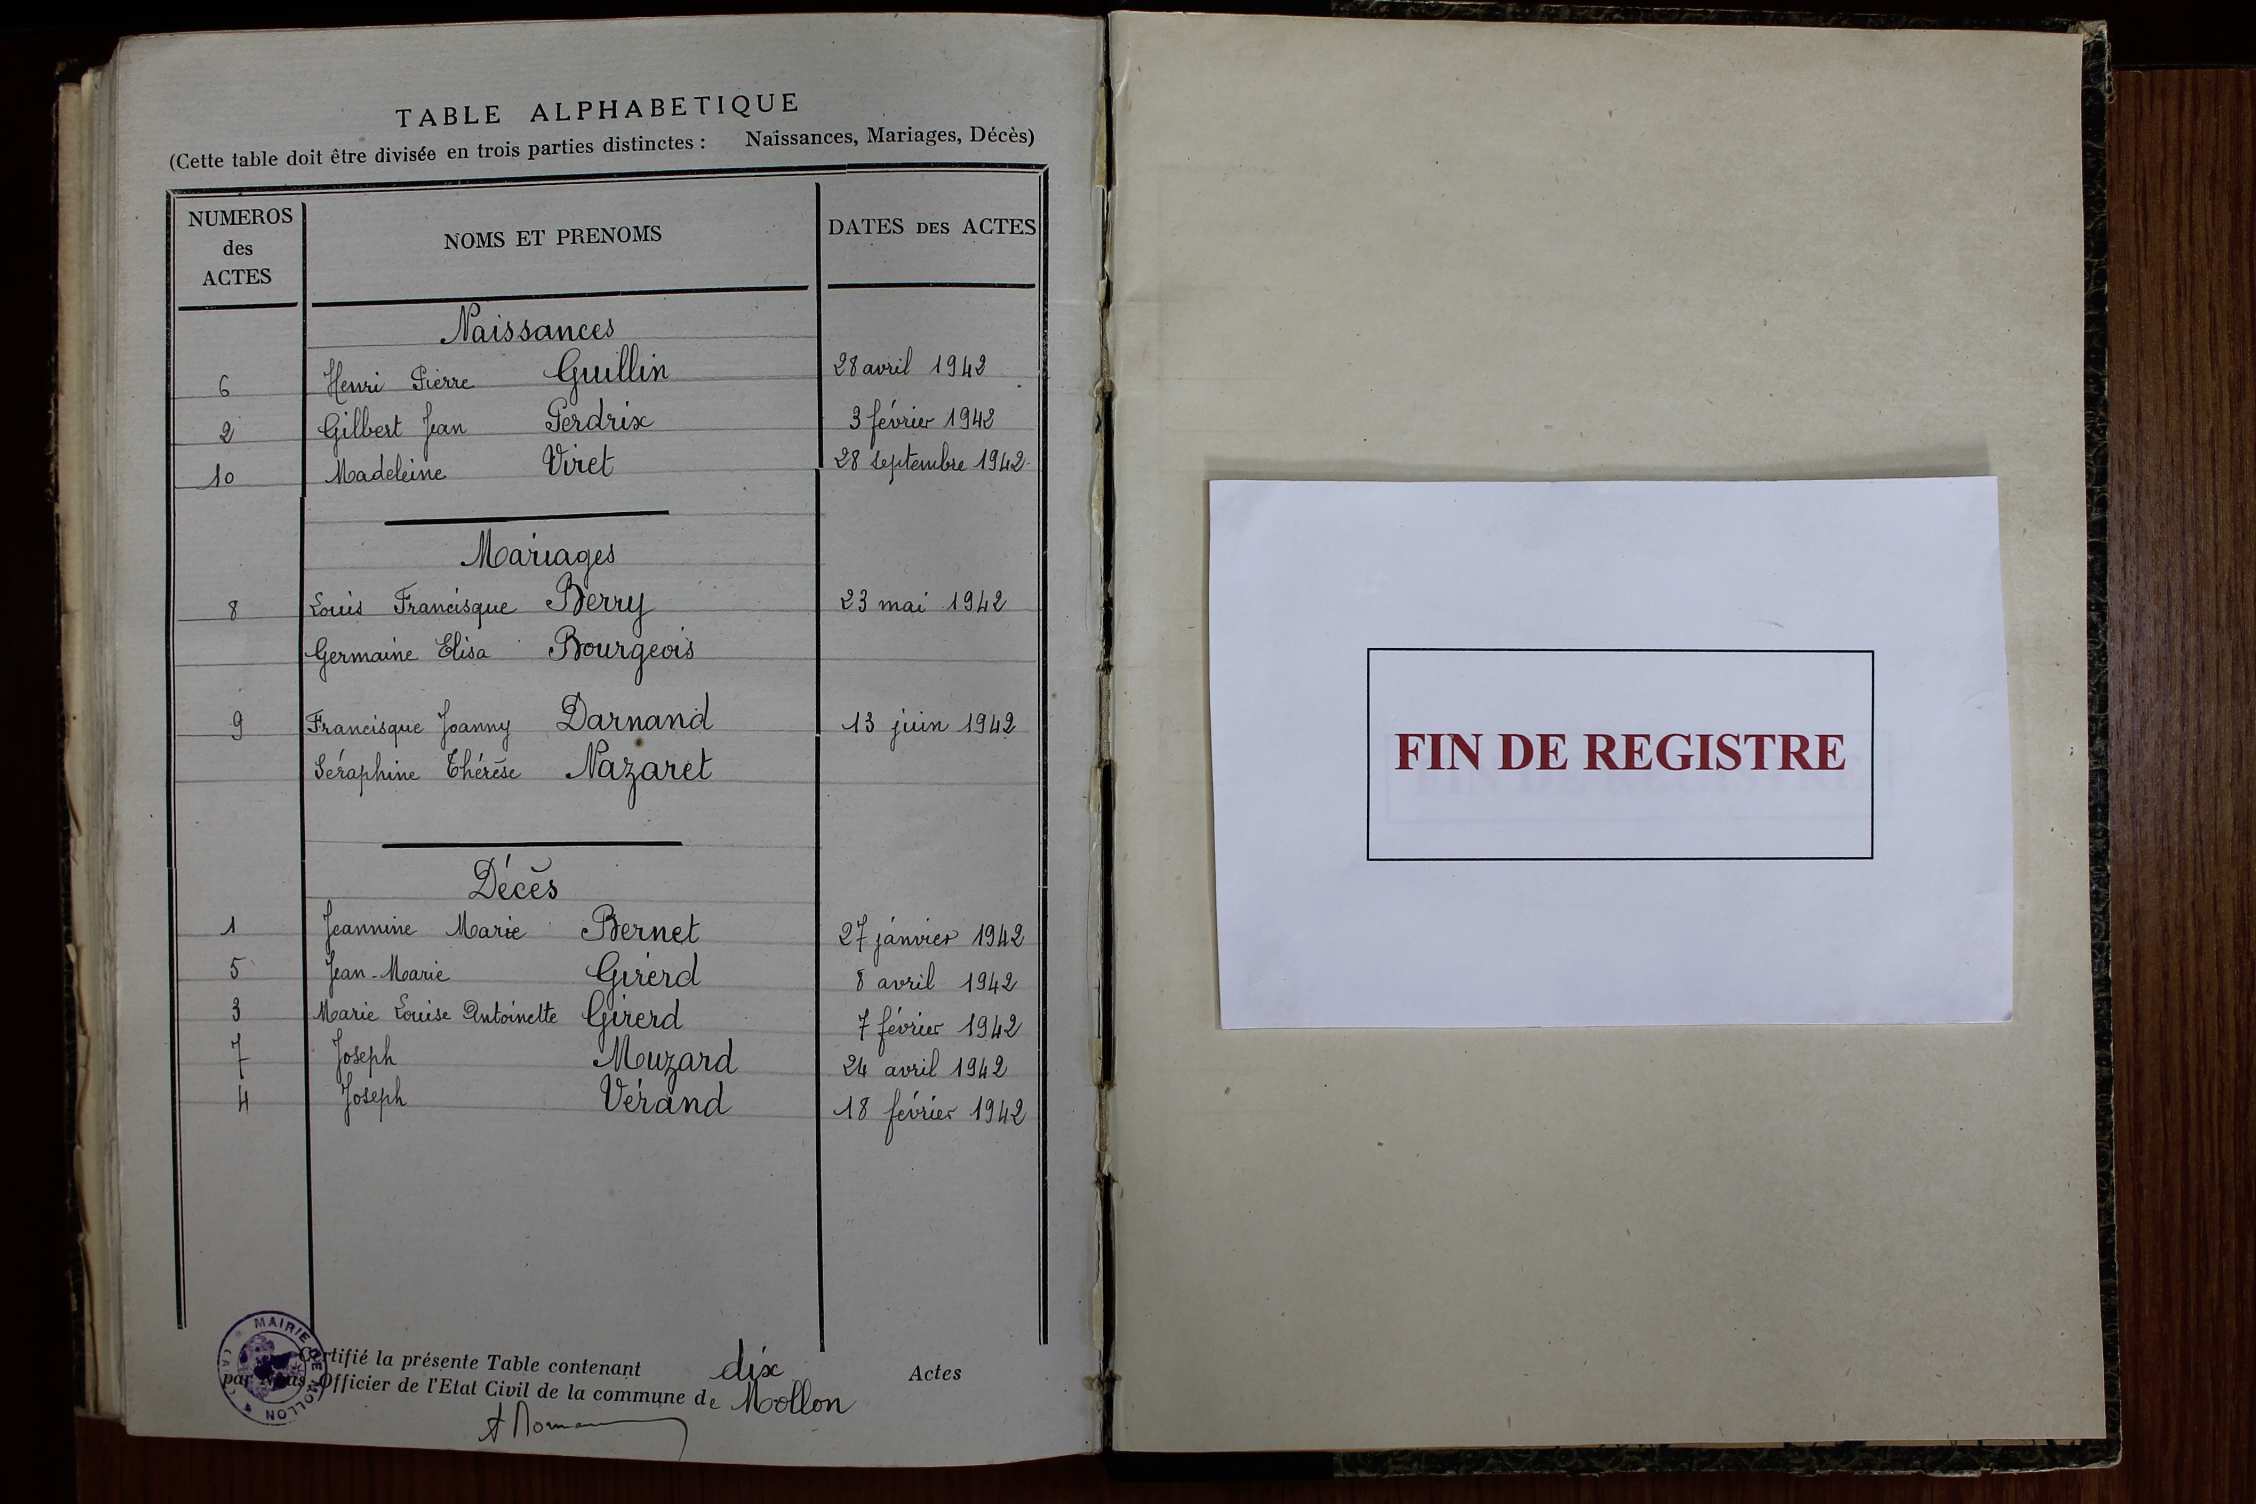 TABLE ALPHABETIQUE
(Cette table doit être divisée en trois parties distinctes : Naissances, Mariages, Décès)
NUMEROS des ACTES NOMS ET PRENOMS DATES DES ACTES
Naissances
6 Henri Pierre Guillin 28 avril 1942
2 Gilbert Jean Perdrix 3 février 1942
10 Madeleine Viret 28 septembre 1942
Mariages
8 Louis Francisque Berry 23 mai 1942
Germaine Elisa Bourgeois
9 Francisque Joanny Darnand 13 juin 1942
Séraphine Thérèse Nazaret
Décès
1 Jeannine Marie Bernet 27 janvier 1942
5 Jean-Marie Girerd 8 avril 1942
3 Marie Louise Antoinette Girerd 7 février 1942
7 Joseph Muzard 24 avril 1942
4 Joseph Vérand 18 février 1942
Certifié la présente Table contenant dix Actes
par Nous, Officier de l'Etat Civil de la commune de Mollon
MAIRIE DE MOLLON
FIN DE REGISTRE